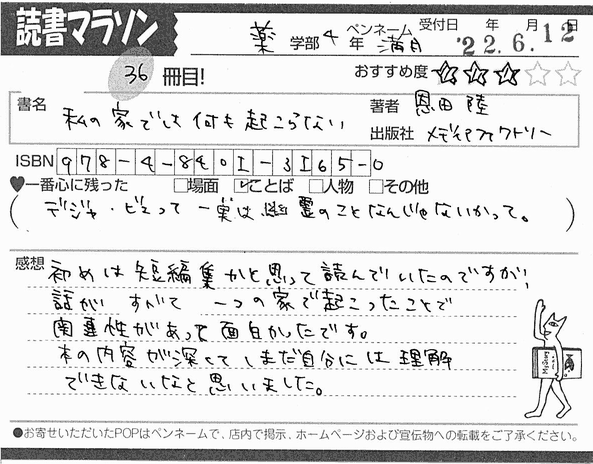 読書マラソン
薬 学部 4 年 ペンネーム 満月 受付日 年 月 日 '22.6.12
36 冊目!
おすすめ度 ★★★☆☆
書名 私の家では何も起こらない
著者 恩田 陸
出版社 メディアファクトリー
ISBN 978-4-8401-3165-0
♥一番心に残った □場面 ☑ことば □人物 □その他
(デジャ・ビュって一実は幽霊のことなんじゃないかって。)
感想 初めは短編集かと思って読んでいたのですが、
話がすべて一つの家で起こったことで
関連性があって面白かったです。
本の内容が深くてまだ自分には理解
できないなと思いました。
●お寄せいただいたPOPはペンネームで、店内で掲示、ホームページおよび宣伝物への転載をご了承ください。